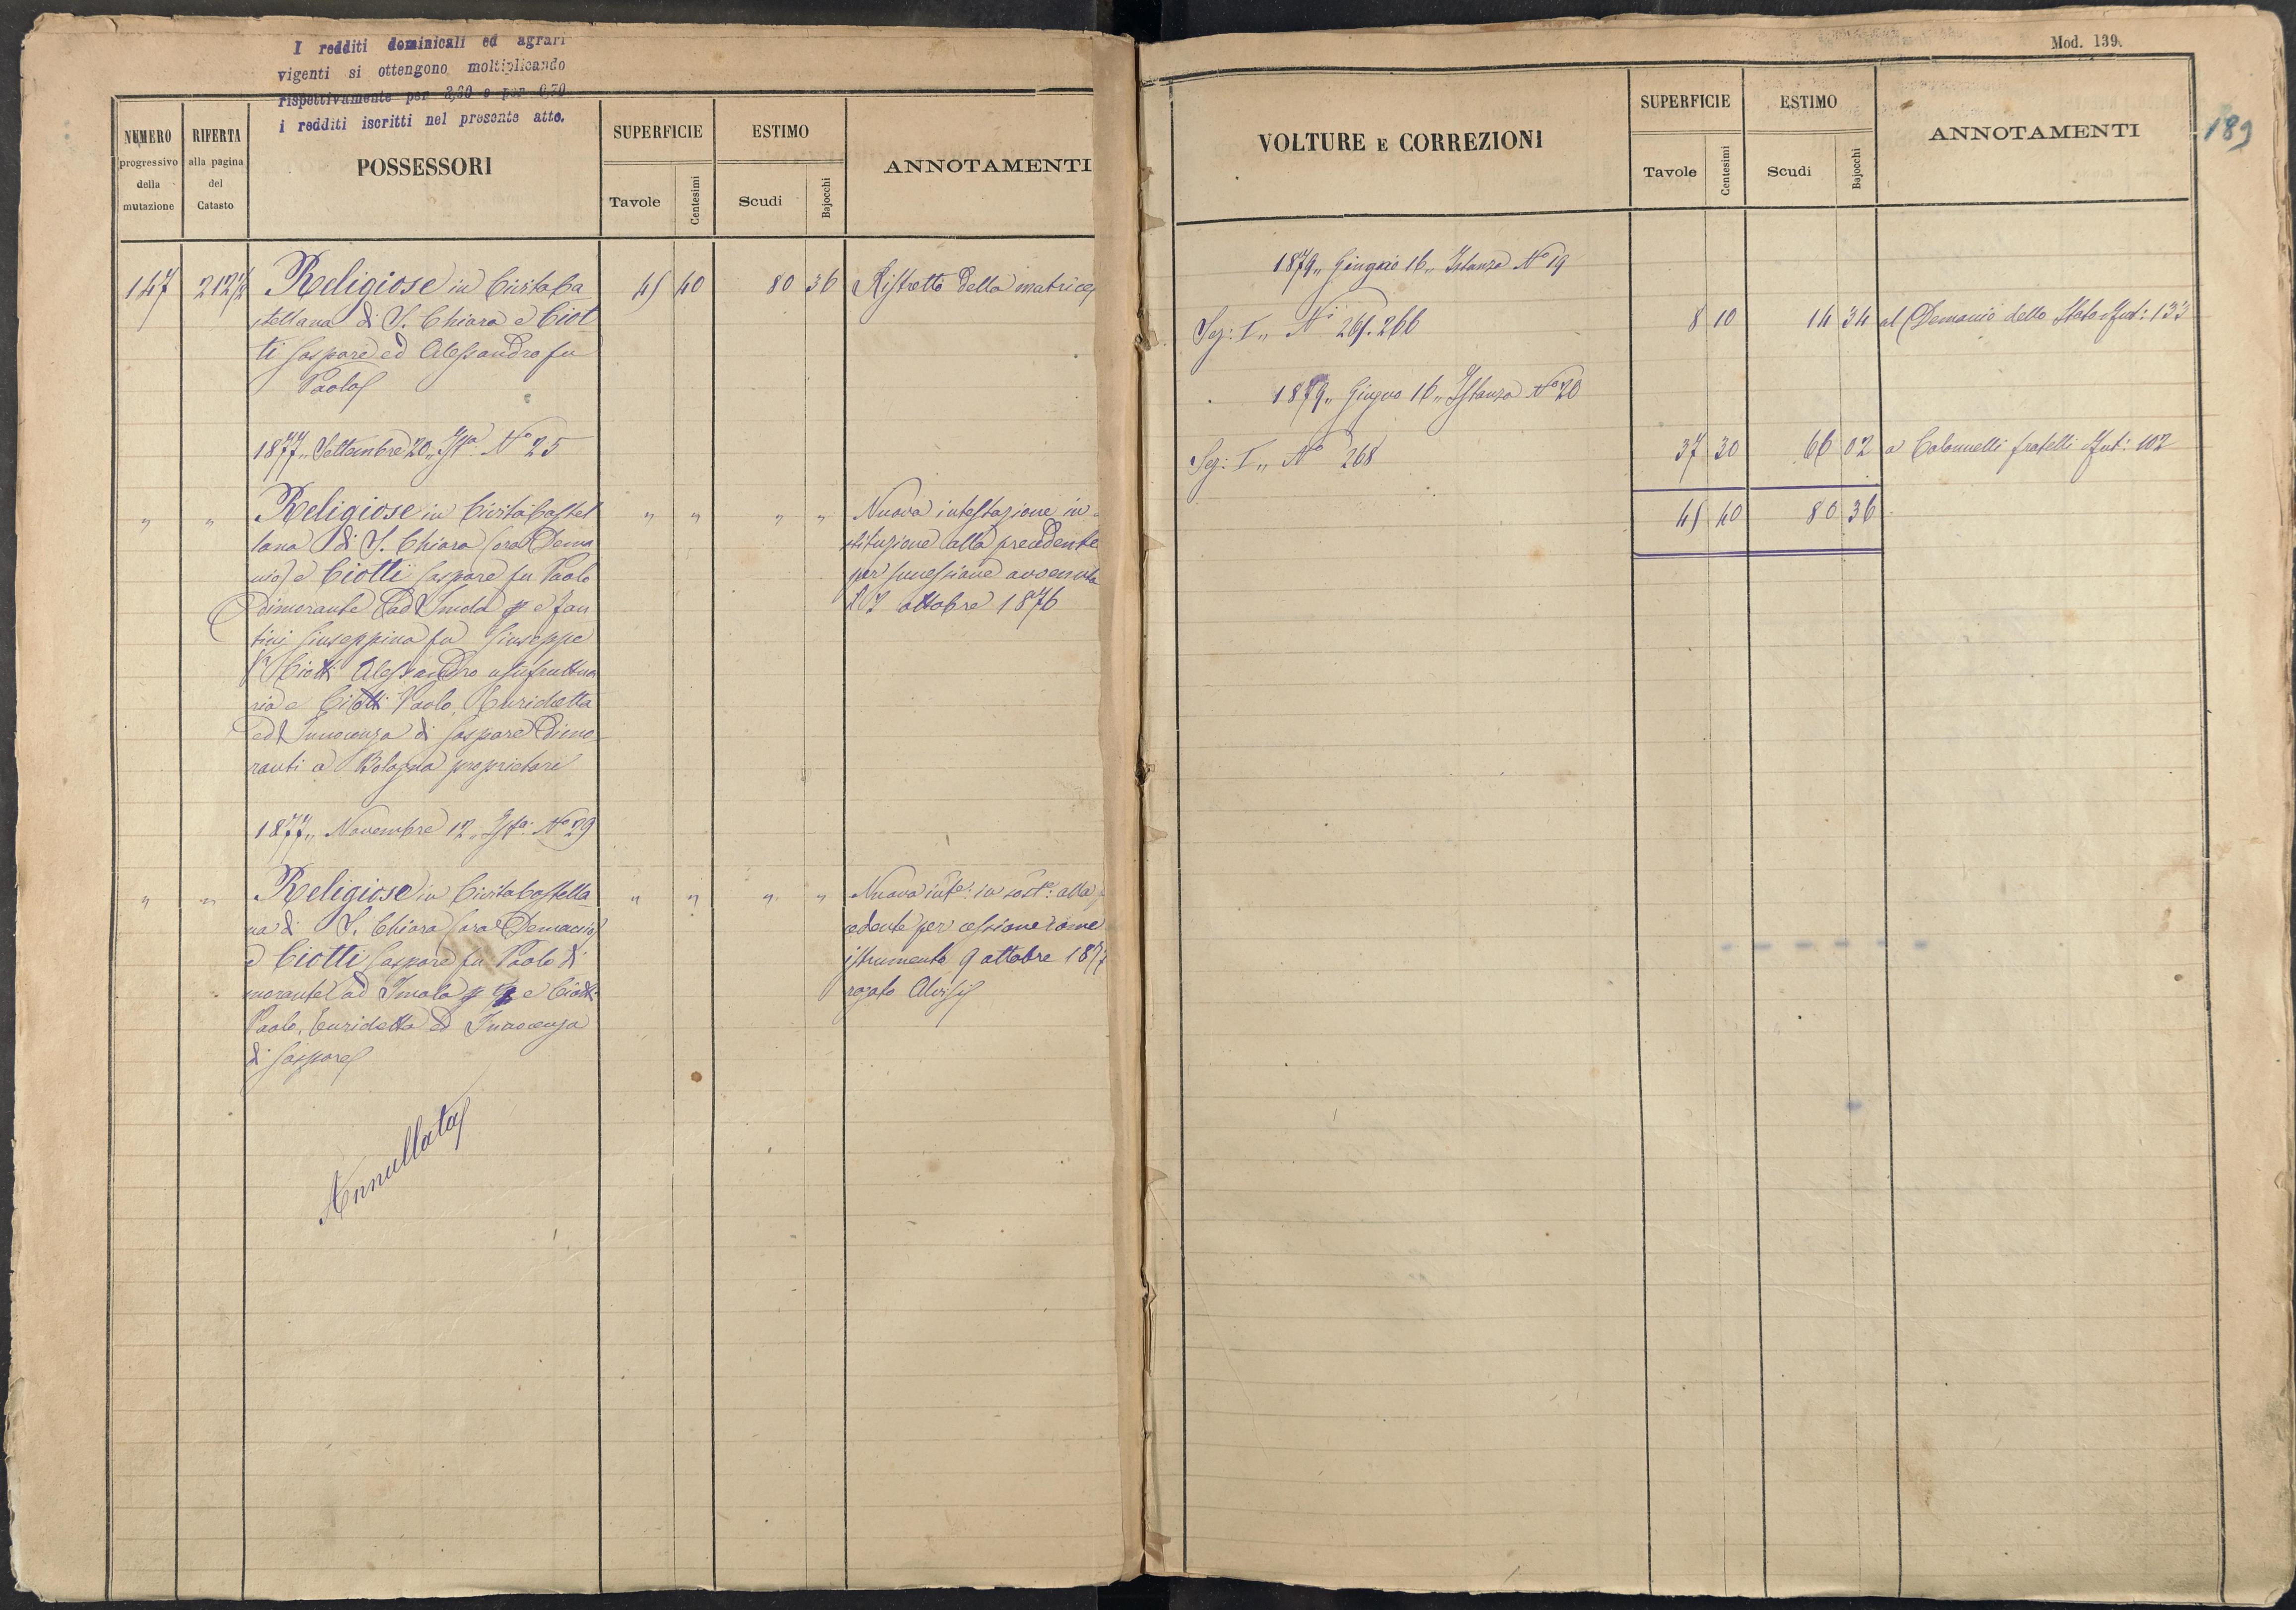 I redditi dominicali ed agrari
vigenti si ottengono moltiplicando
rispettivamente per 3,60 e per 0,70
i redditi iscritti nel presente atto.
NUMERO progressivo della mutazione
RIFERTA alla pagina del Catasto
POSSESSORI
SUPERFICIE
Tavole Centesimi
ESTIMO
Scudi Bajocchi
ANNOTAMENTI
147 212/2 Religiose in Civitaca 45 40 80 36 Ristretto della matrice
stellana di S. Chiara e Ciot
ti Gaspare ed Alessandro fu
Paolo
1877 „ Settembre 20 „ Ista N° 25
„ „ Religiose in Civitacastel „ „ „ „ Nuova intestazione in so
lana di S. Chiara (ora Dema stituzione alla precedente
nio) e Ciotti Gaspare fu Paolo per successione avvenuta
dimorante ad Imola e Fan ottobre 1876
tini Giuseppina fu Giuseppe
Ciotti Alessandro usufruttua
ria e Ciotti Paolo, Enrichetta
ed Innocenza di Gaspare dimo
ranti a Bologna proprietari
1877 „ Novembre 12 „ Ista N° 29
„ „ Religiose in Civitacastella „ „ „ „ Nuova inte: in sostne: alla
na di S. Chiara (ora Demanio) cedente per cessione come
e Ciotti Gaspare fu Paolo di istrumento 9 ottobre 1877
morante ad Imola e Ciotti rogato Alvisi
Paolo, Enrichetta ed Innocenza
di Gaspare
Annullata
Mod. 139.
189
VOLTURE E CORREZIONI
SUPERFICIE
Tavole Centesimi
ESTIMO
Scudi Bajocchi
ANNOTAMENTI
1879 „ Giugno 16 „ Istanza N° 19
Sez: I „ Ni 265. 266 8 10 14 34 al Demanio dello Stato Int: 133
1879 „ Giugno 16 „ Istanza N° 20
Sez: I „ N° 268 37 30 66 02 a Colonnelli fratelli Int: 102
45 40 80 36